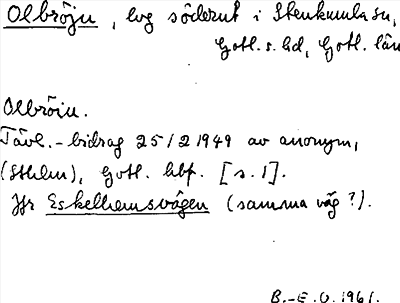 Olbröju, lvg söderut i Stenkumla sn,
Gotl. s. hd, Gotl. län
Olbröju.
Tävl.-bidrag 25/2 1949 av anonym,
(Sthlm), Gotl. hbf. [s. 1].
Jfr Eskelhemsvägen (samma väg?).
B.-E. O. 1961.